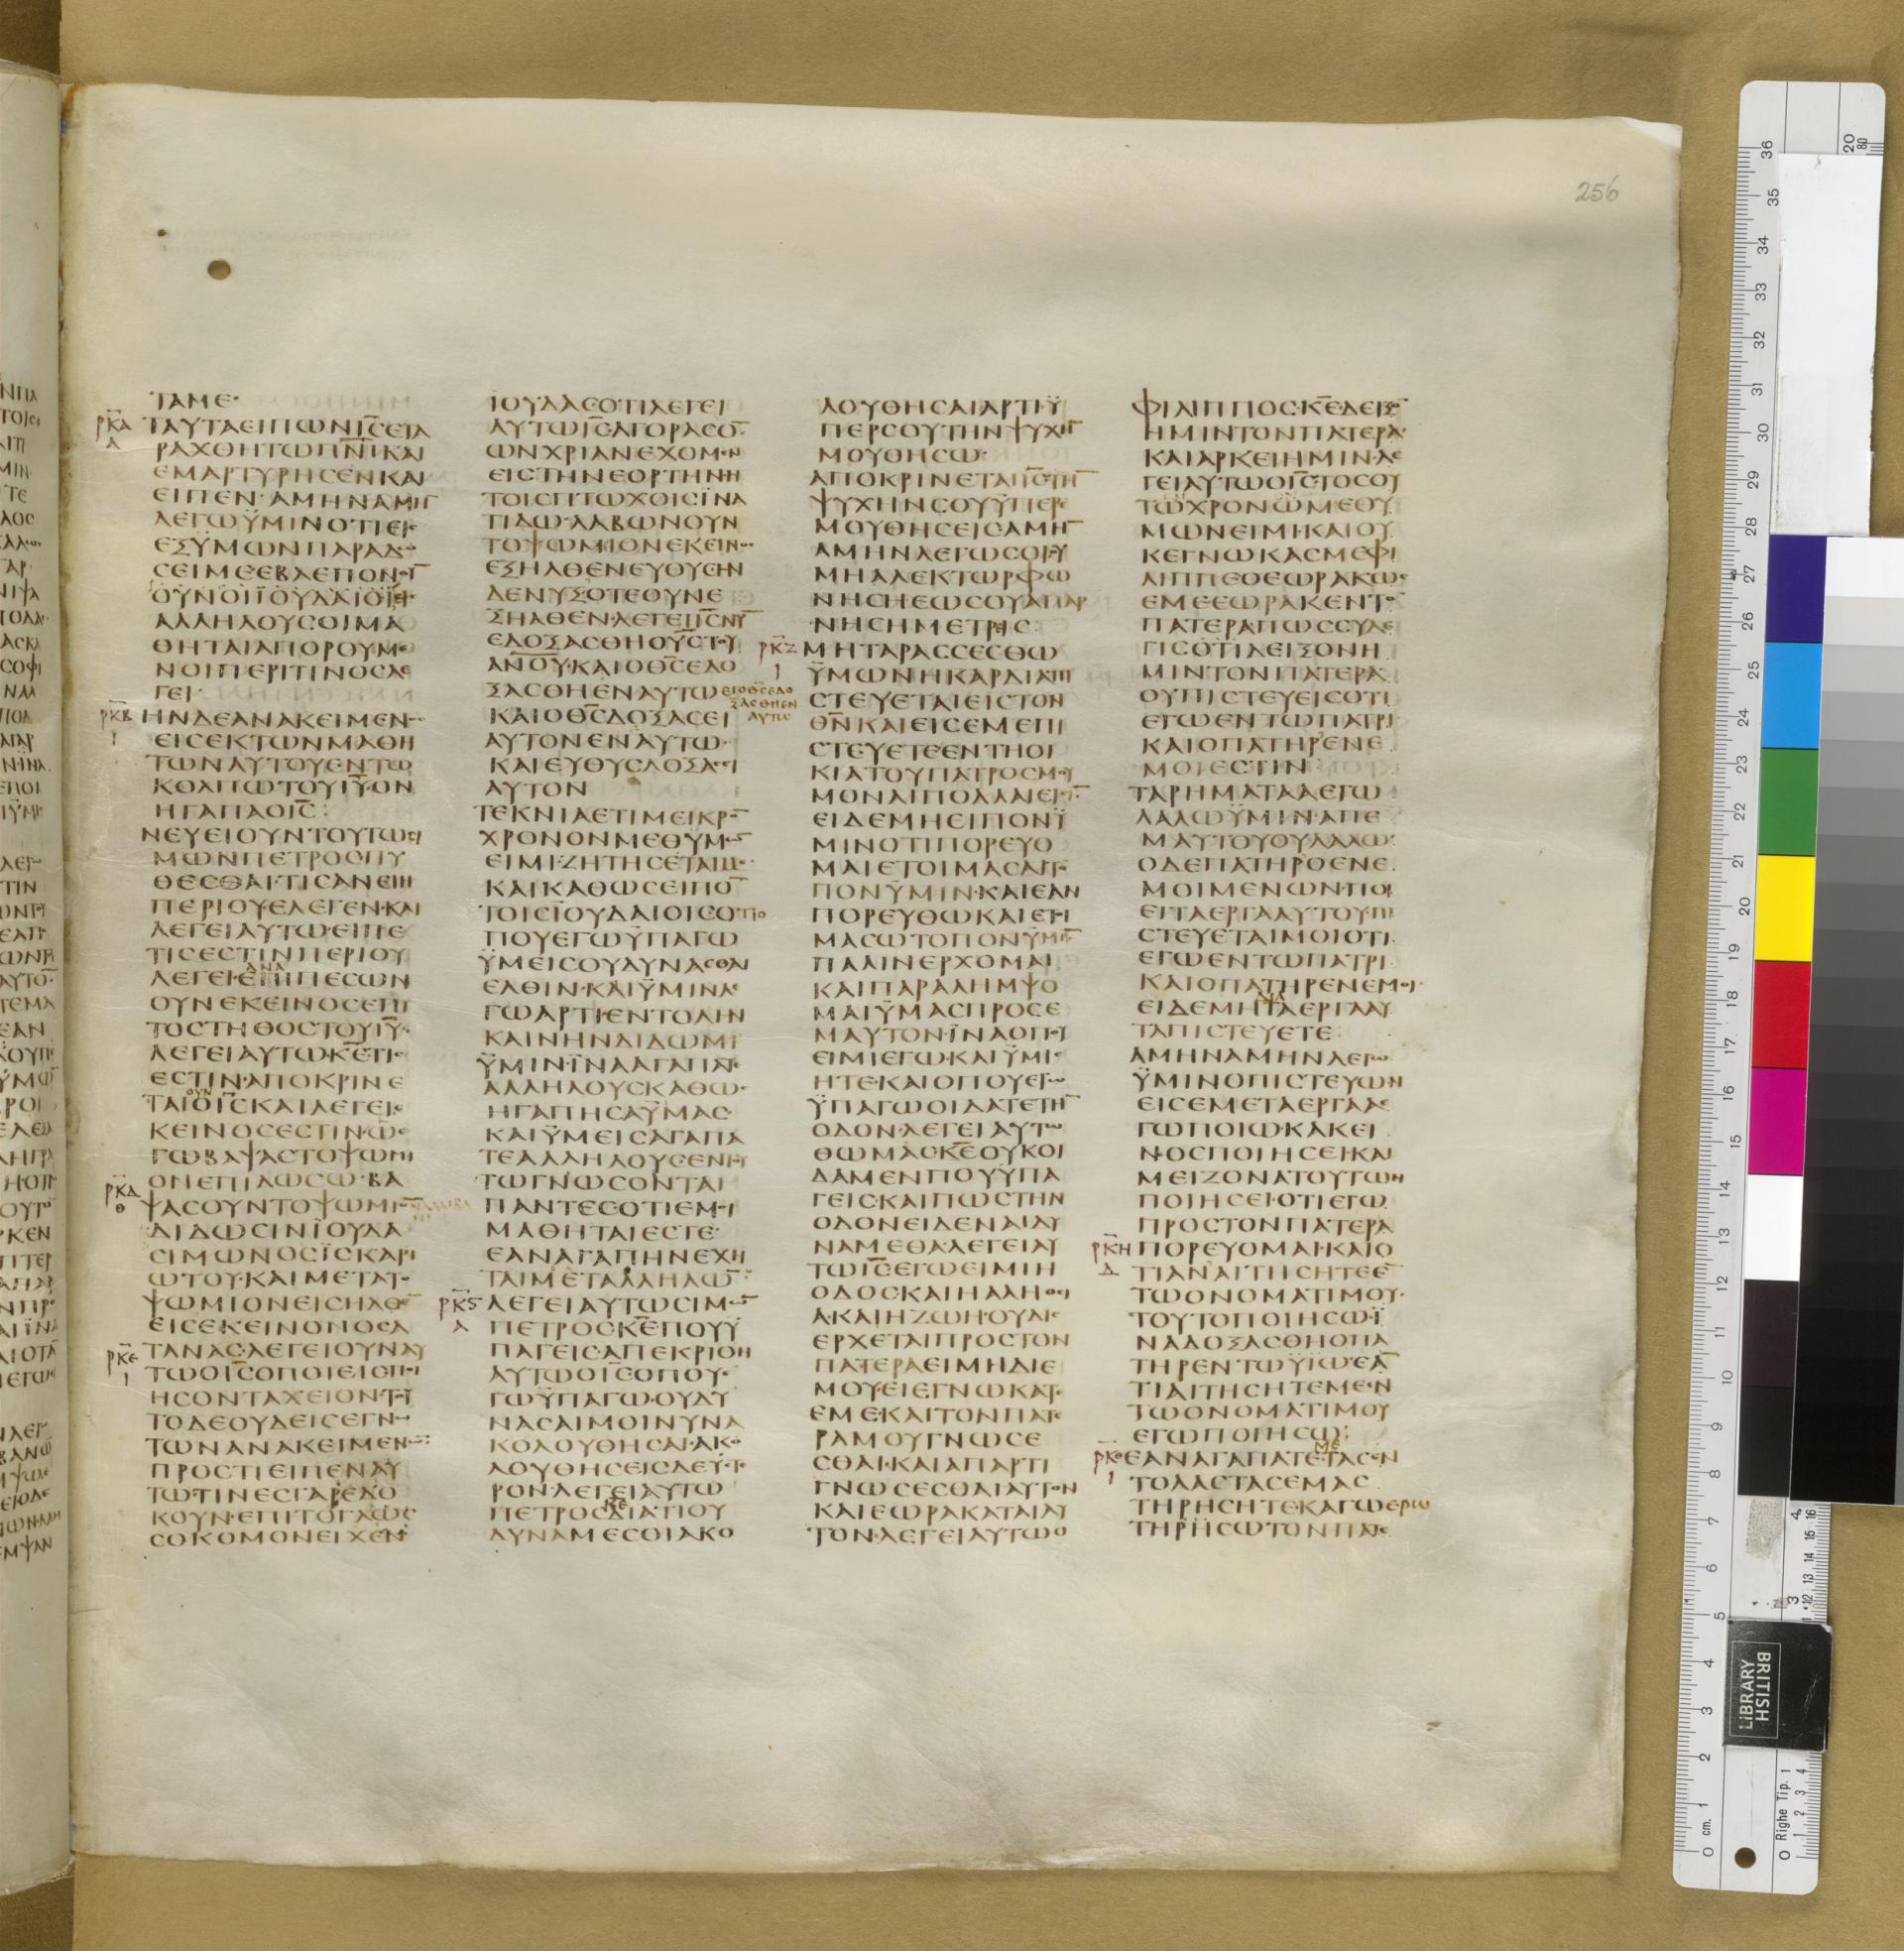 256
ΤΑΜΕ·
ΤΑΥΤΑΕΙΠΩΝΙ̅Ϲ̅ΕΤΑ
ΡΑΧΘΗΤΩΠ̅Ν̅Ι̅ΚΑΙ
ΕΜΑΡΤΥΡΗϹΕΝΚΑΙ
ΕΙΠΕΝ·ΑΜΗΝΑΜΗ̅
ΛΕΓΩΫΜΙΝΟΤΙΕΙϹ
ΕΞΫΜΩΝΠΑΡΑΔΩ
ϹΕΙΜΕΕΒΛΕΠΟΝΟΥ̅
ΟΥΝΟΙΪΟΥΔΑΙΟΙΕΙϹ
ΑΛΛΗΛΟΥϹΟΙΜΑ
ΘΗΤΑΙΑΠΟΡΟΥΜΕ
ΝΟΙΠΕΡΙΤΙΝΟϹΛΕ
ΓΕΙ·
ΗΝΔΕΑΝΑΚΕΙΜΕΝΟϹ
ΕΙϹΕΚΤΩΝΜΑΘΗ
ΤΩΝΑΥΤΟΥΕΝΤΩ
ΚΟΛΠΩΤΟΥΙ̅Υ̅·ΟΝ
ΗΓΑΠΑΟΙ̅Ϲ̅:
ΝΕΥΕΙΟΥΝΤΟΥΤΩϹΙ
ΜΩΝΠΕΤΡΟϹΠΥ
ΘΕϹΘΑΙ·ΤΙϹΑΝΕΙΗ
ΠΕΡΙΟΥΕΛΕΓΕΝ·ΚΑΙ
ΛΕΓΕΙΑΥΤΩ·ΕΙΠΕ
ΤΙϹΕϹΤΙΝΠΕΡΙΟΥ
ΑΝΑ
ΛΕΓΕΙ·ΕΠΙΠΕϹΩΝ
ΟΥΝΕΚΕΙΝΟϹΕΠΙ
ΤΟϹΤΗΘΟϹΤΟΥΙ̅Υ̅·
ΛΕΓΕΙΑΥΤΩΚ̅Ε̅ΤΙϹ
ΕϹΤΙΝ·ΑΠΟΚΡΙΝΕ
ΟΥΝ
ΤΑΙΟΙ̅Ϲ̅ΚΑΙΛΕΓΕΙΕ
ΚΕΙΝΟϹΕϹΤΙΝ·ΩΕ
ΓΩΒΑΨΑϹΤΟΨΩΜΙ
ΟΝΕΠΙΔΩϹΩ·ΒΑ
ΨΑϹΟΥΝΤΟΨΩΜΙΟ̅
ΔΙΔΩϹΙΝΪΟΥΔΑ
ϹΙΜΩΝΟϹΪϹΚΑΡΙ
ΩΤΟΥ·ΚΑΙΜΕΤΑΤΟ
ΨΩΜΙΟΝΕΙϹΗΛΘΕ̅
ΕΙϹΕΚΕΙΝΟΝΟϹΑ
ΤΑΝΑϹ·ΛΕΓΕΙΟΥΝΑΥ
ΤΩΟΙ̅Ϲ̅ΟΠΟΙΕΙϹΠΟΙ
ΗϹΟΝΤΑΧΕΙΟΝ·ΤΟΥ
ΤΟΔΕΟΥΔΕΙϹΕΓΝΩ
ΤΩΝΑΝΑΚΕΙΜΕΝΩ̅
ΠΡΟϹΤΙΕΙΠΕΝΑΥ
ΤΩ·ΤΙΝΕϹΓΑΡΕΔΟ
ΚΟΥΝ·ΕΠΙΤΟΓΛΩϹ
ϹΟΚΟΜΟΝΕΙΧΕΝ
ΪΟΥΔΑϹΟΤΙΛΕΓΕΙ
ΑΥΤΩΙ̅Ϲ̅ΑΓΟΡΑϹΟ̅
ΩΝΧΡΙΑΝΕΧΟΜΕΝ
ΕΙϹΤΗΝΕΟΡΤΗΝ·Η
ΤΟΙϹΠΤΩΧΟΙϹΪΝΑ
ΤΙΔΩ·ΛΑΒΩΝΟΥΝ
ΤΟΨΩΜΙΟΝΕΚΕΙΝΟϹ
ΕΞΗΛΘΕΝΕΥΘΥϹΗΝ
ΔΕΝΥΞΟΤΕΟΥΝΕ
ΞΗΛΘΕΝ·ΛΕΓΕΙΙ̅Ϲ̅ΝΥ̅
ΕΔΟΞΑϹΘΗΟΥ̅Ϲ̅ΤΟΥ
ΑΝ̅Ο̅Υ̅·ΚΑΙΟΘ̅Ϲ̅ΕΔΟ
ΞΑϹΘΗΕΝΑΥΤΩ
ΕΙΟΘ̅Ϲ̅ΕΔΟ
ΞΑϹΘΗΕΝ
ΑΥΤΩ
ΚΑΙΟΘ̅Ϲ̅ΔΟΞΑϹΕΙ
ΑΥΤΟΝΕΝΑΥΤΩ·
ΚΑΙΕΥΘΥϹΔΟΞΑϹΕΙ
ΑΥΤΟΝ
ΤΕΚΝΙΑΕΤΙΜΕΙΚΡΟ̅
ΧΡΟΝΟΝΜΕΘΫΜΩ̅
ΕΙΜΙ·ΖΗΤΗϹΕΤΑΙΜΕ·
ΚΑΙΚΑΘΩϹΕΙΠΟ̅
ΤΟΙϹΪΟΥΔΑΙΟΙϹΟΤΙΟ
ΠΟΥΕΓΩΫΠΑΓΩ
ΫΜΕΙϹΟΥΔΥΝΑϹΘΑΙ
ΕΛΘΙΝ·ΚΑΙΫΜΙΝΛΕ
ΓΩΑΡΤΙ·ΕΝΤΟΛΗΝ
ΚΑΙΝΗΝΔΙΔΩΜΙ
ΫΜΙΝ·ΪΝΑΑΓΑΠΑΤΕ
ΑΛΛΗΛΟΥϹΚΑΘΩϹ
ΗΓΑΠΗϹΑΫΜΑϹ
ΚΑΙΫΜΕΙϹΑΓΑΠΑ
ΤΕΑΛΛΗΛΟΥϹΕΝΤΟΥ
ΤΩΓΝΩϹΟΝΤΑΙ
ΠΑΝΤΕϹΟΤΙΕΜΟΙ
ΜΑΘΗΤΑΙΕϹΤΕ·
ΕΑΝΑΓΑΠΗΝΕΧΗ
ΤΑΙΜΕΤΑΛΛΗΛΩ̅:
ΛΕΓΕΙΑΥΤΩϹΙΜΩ̅
ΠΕΤΡΟϹΚ̅Ε̅ΠΟΥΫ
ΠΑΓΕΙϹ·ΑΠΕΚΡΙΘΗ
ΑΥΤΩΟΙ̅Ϲ̅ΟΠΟΥΕ
ΓΩΫΠΑΓΩ·ΟΥΔΥ
ΝΑϹΑΙΜΟΙΝΥΝΑ
ΚΟΛΟΥΘΗϹΑΙ·ΑΚΟ
ΛΟΥΘΗϹΕΙϹΔΕΫϹΤΕ
ΡΟΝ·ΛΕΓΕΙΑΥΤΩ
ΠΕΤΡΟϹΔΙΑΤΙΟΥ
ΔΥΝΑΜΕϹΟΙΑΚΟ
ΛΟΥΘΗϹΑΙΑΡΤΙ·Ϋ
ΠΕΡϹΟΥΤΗΝΨΥΧΗ̅
ΜΟΥΘΗϹΩ·
ΑΠΟΚΡΙΝΕΤΑΙΙ̅Ϲ̅ΤΗ̅
ΨΥΧΗΝϹΟΥΫΠΕΡΕ
ΜΟΥΘΗϹΕΙϹΑΜΗ̅
ΑΜΗΝΛΕΓΩϹΟΙ·ΟΥ
ΜΗΑΛΕΚΤΩΡΦΩ
ΝΗϹΗΕΩϹΟΥΑΠΑΡ
ΝΗϹΗΜΕΤΡΙϹ:
ΜΗΤΑΡΑϹϹΕϹΘΩ
ΫΜΩΝΗΚΑΡΔΙΑΠΙ
ϹΤΕΥΕΤΑΙΕΙϹΤΟΝ
Θ̅Ν̅ΚΑΙΕΙϹΕΜΕΠΙ
ϹΤΕΥΕΤΕΕΝΤΗΟΙ
ΚΙΑΤΟΥΠΑΤΡΟϹΜΟΥ
ΜΟΝΑΙΠΟΛΛΑΙΕΙϹΙ̅
ΕΙΔΕΜΗΕΙΠΟΝΫ
ΜΙΝΟΤΙΠΟΡΕΥΟ
ΜΑΙΕΤΟΙΜΑϹΑΙΤΟ
ΠΟΝΫΜΙΝ·ΚΑΙΕΑΝ
ΠΟΡΕΥΘΩΚΑΙΕΤΟΙ
ΜΑϹΩΤΟΠΟΝΫΜΙ̅
ΠΑΛΙΝΕΡΧΟΜΑΙ
ΚΑΙΠΑΡΑΛΗΜΨΟ
ΜΑΙΫΜΑϹΠΡΟϹΕ
ΜΑΥΤΟΝ·ΪΝΑΟΠΟΥ
ΕΙΜΙΕΓΩ·ΚΑΙΫΜΙϹ
ΗΤΕ·ΚΑΙΟΠΟΥΕΓΩ
ΫΠΑΓΩΟΙΔΑΤΕΤΗ̅
ΟΔΟΝ·ΛΕΓΕΙΑΥΤΩ
ΘΩΜΑϹΚ̅Ε̅ΟΥΚΟΙ
ΔΑΜΕΝΠΟΥΫΠΑ
ΓΕΙϹ·ΚΑΙΠΩϹΤΗΝ
ΟΔΟΝΕΙΔΕΝΑΙΔΥ
ΝΑΜΕΘΑ·ΛΕΓΕΙΑΥ
ΤΩΙ̅Ϲ̅ΕΓΩΕΙΜΙΗ
ΟΔΟϹΚΑΙΗΑΛΗΘΕΙ
Α·ΚΑΙΗΖΩΗ·ΟΥΔΙϹ
ΕΡΧΕΤΑΙΠΡΟϹΤΟΝ
ΠΑΤΕΡΑΕΙΜΗΔΙΕ
ΜΟΥ·ΕΙΕΓΝΩΚΑΤΕ
ΕΜΕ·ΚΑΙΤΟΝΠΑΤΕ
ΡΑΜΟΥΓΝΩϹΕ
ϹΘΑΙ·ΚΑΙΑΠΑΡΤΙ
ΓΝΩϹΕϹΘΑΙΑΥΤΟΝ
ΚΑΙΕΩΡΑΚΑΤΑΙΑΥ
ΤΟΝ·ΛΕΓΕΙΑΥΤΩΟ
ΦΙΛΙΠΠΟϹ·Κ̅Ε̅ΔΕΙΞΟ̅
ΗΜΙΝΤΟΝΠΑΤΕΡΑ·
ΚΑΙΑΡΚΕΙΗΜΙΝ·ΛΕ
ΓΕΙΑΥΤΩΟΙ̅Ϲ̅ΤΟϹΟΥ
ΤΩΧΡΟΝΩΜΕΘΥ
ΜΩΝΕΙΜΙ·ΚΑΙΟΥ
ΚΕΓΝΩΚΑϹΜΕΦΙ
ΛΙΠΠΕΟΕΩΡΑΚΩϹ
ΕΜΕΕΩΡΑΚΕΝΤΟ̅
ΠΑΤΕΡΑΠΩϹϹΥΛΕ
ΓΙϹΟΤΙΔΕΙΞΟΝΗ
ΜΙΝΤΟΝΠΑΤΕΡΑ
ΟΥΠΙϹΤΕΥΕΙϹΟΤΙ
ΕΓΩΕΝΤΩΠΑΤΡΙ·
ΚΑΙΟΠΑΤΗΡΕΝΕ
ΜΟΙΕϹΤΙΝ
ΤΑΡΗΜΑΤΑΑΕΓΩ
ΛΑΛΩΫΜΙΝ·ΑΠΕ
ΜΑΥΤΟΥΟΥΛΑΛΩ·
ΟΔΕΠΑΤΗΡΟΕΝΕ
ΜΟΙΜΕΝΩΝ·ΠΟΙ
ΕΙΤΑΕΡΓΑΑΥΤΟΥ·ΠΙ
ϹΤΕΥΕΤΑΙΜΟΙΟΤΙ
ΕΓΩΕΝΤΩΠΑΤΡΙ
ΚΑΙΟΠΑΤΗΡΕΝΕΜΟΙ·
ΕΙΔΕΜΗΤΑΕΡΓΑΑΥ
ΤΑΠΙϹΤΕΥΕΤΕ
ΑΜΗΝΑΜΗΝΛΕΓΩ
ΫΜΙΝΟΠΙϹΤΕΥΩΝ
ΕΙϹΕΜΕΤΑΕΡΓΑΑΕ
ΓΩΠΟΙΩ·ΚΑΚΕΙ
ΝΟϹΠΟΙΗϹΕΙ·ΚΑΙ
ΜΕΙΖΟΝΑΤΟΥΤΩΝ
ΠΟΙΗϹΕΙ·ΟΤΙΕΓΩ
ΠΡΟϹΤΟΝΠΑΤΕΡΑ
ΠΟΡΕΥΟΜΑΙ·ΚΑΙΟ
ΤΙΑΝΑΙΤΗϹΗΤΕΕ̅
ΤΩΟΝΟΜΑΤΙΜΟΥ·
ΤΟΥΤΟΠΟΙΗϹΩ·Ϊ
ΝΑΔΟΞΑϹΘΗΟΠΑ
ΤΗΡΕΝΤΩΫΙΩ·ΕΑ̅
ΤΙΑΙΤΗϹΗΤΕΜΕ·ΕΝ
ΤΩΟΝΟΜΑΤΙΜΟΥ
ΕΓΩΠΟΙΗϹΩ:
ΜΕ
ΕΑΝΑΓΑΠΑΤΕΤΑϹΕΝ
ΤΟΛΑϹΤΑϹΕΜΑϹ
ΤΗΡΗϹΗΤΕ·ΚΑΓΩΕΡΩ
ΤΗΡΗϹΩΤΟΝΠΑΤΕ
BRITISH
LIBRARY